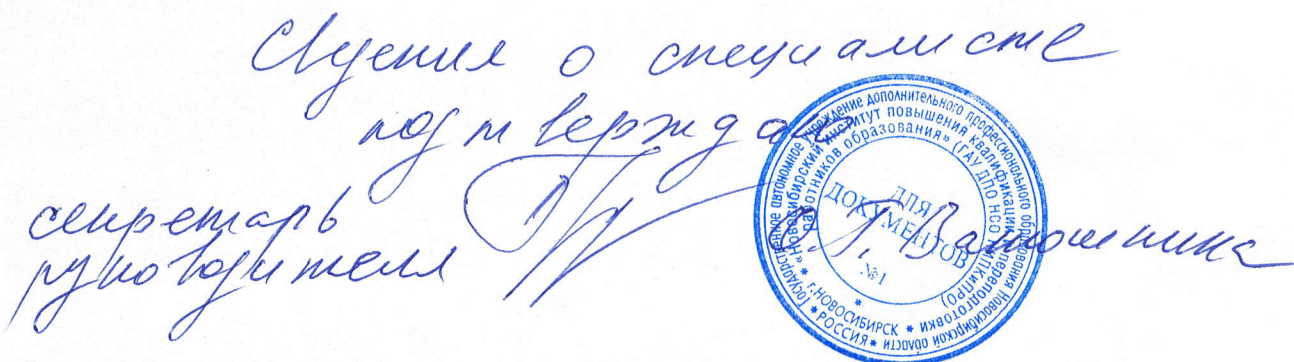 Сведения о специалисте
подтверждаю
секретарь
руководителя
Государственное автономное учреждение дополнительного профессионального образования Новосибирской области * РОССИЯ *
«Новосибирский институт повышения квалификации и переподготовки * г.НОВОСИБИРСК *
работников образования» (ГАУ ДПО НСО НИПКиПРО)
ДЛЯ
ДОКУМЕНТОВ
№1